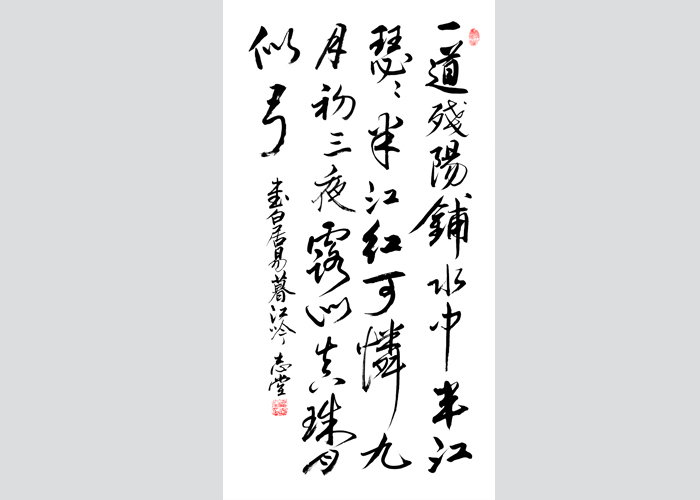 一道殘陽鋪水中半江
瑟々半江紅可憐九
月初三夜露似真珠月
似弓
書白居易暮江吟 志堂